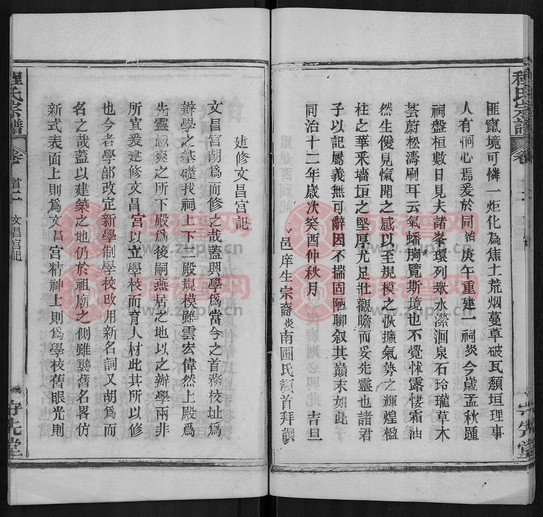 匪竄境可憐一炬化為焦土荒烟蔓草破瓦頹垣理事
人有恫心焉爰於同治庚午重建一祠炎今歲孟秋踵
祠盤桓數日見夫諸峯環列衆水瀠洄泉石玲瓏草木
蓊蔚松濤刷耳云氣蟠胸覽斯境也不覺怵露悽霜油
然生僾見愾聞之感以至規模之恢擴氣勢之輝煌楹
柱之華釆墻垣之堅厚尤足壯觀瞻而妥先靈也諸君
子以記屬義無可辭因不揣固陋聊叙其巔末如此
同治十二年歲次癸酉仲秋月　吉旦
邑庠生宗裔炎南圃氏頓首拜譔
建修文昌宮記
文昌宮胡為而修之哉蓋興學為當今之首務校址為
辦學之基礎我祠上下二殿規模雖云宏偉然上殿為
先靈憑依之所下殿為後嗣燕居之地以之辦學兩非
所宜爰建修文昌宮以立學校而育人材此其所以修
也今者學部改定新學制學校改用新名詞又胡為而
名之哉蓋以建築之地仍於祖廟之側雖襲舊名畧仿
新式表面上則為文昌宮精神上則為學校舊眼光則
程氏宗譜
卷
首二
文昌宮記
程氏宗譜
卷
www.zupu.cn